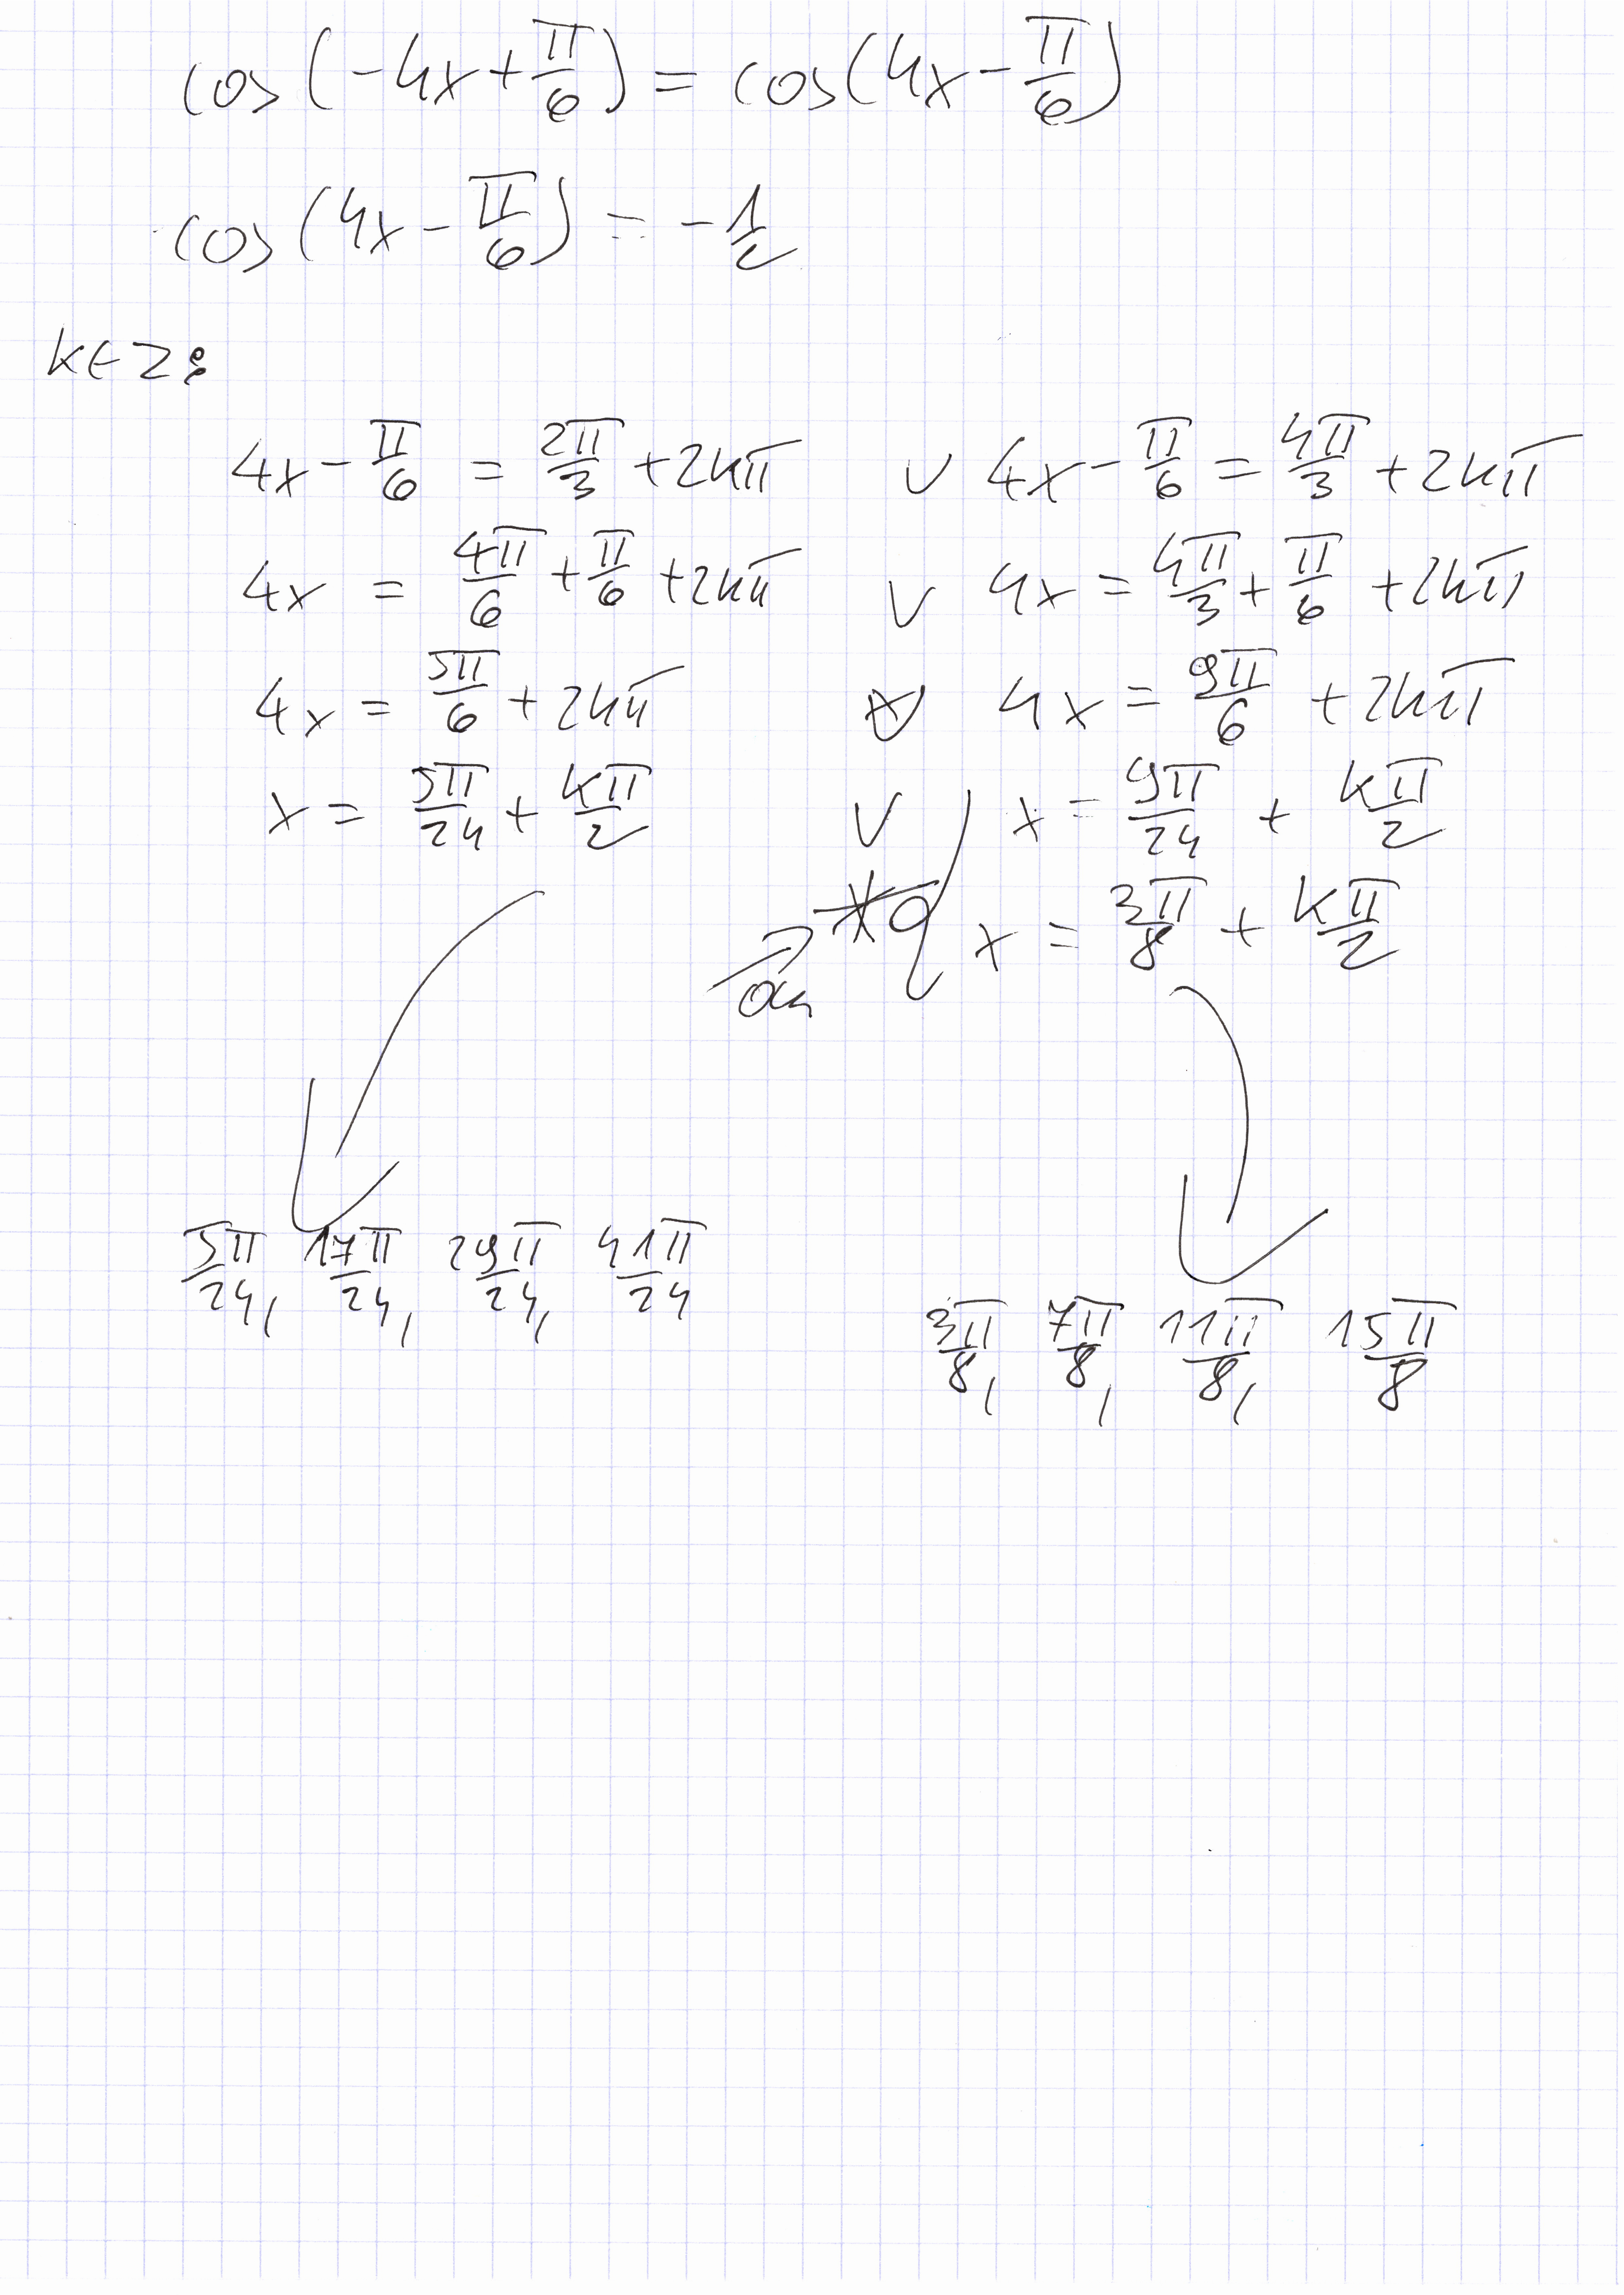 cos(-4x+π/6) = cos(4x-π/6)
cos(4x-π/6) = -1/2
k∈Z:
4x-π/6 = 2π/3 +2kπ ∨ 4x-π/6 = 4π/3 +2kπ
4x = 4π/6 +π/6 +2kπ ∨ 4x = 4π/3 + π/6 +2kπ
4x = 5π/6 + 2kπ ∨ 4x = 9π/6 + 2kπ
x = 5π/24 + kπ/2 ∨ x = 9π/24 + kπ/2
x = 3π/8 + kπ/2
5π/24, 17π/24, 29π/24, 41π/24
3π/8, 7π/8, 11π/8, 15π/8